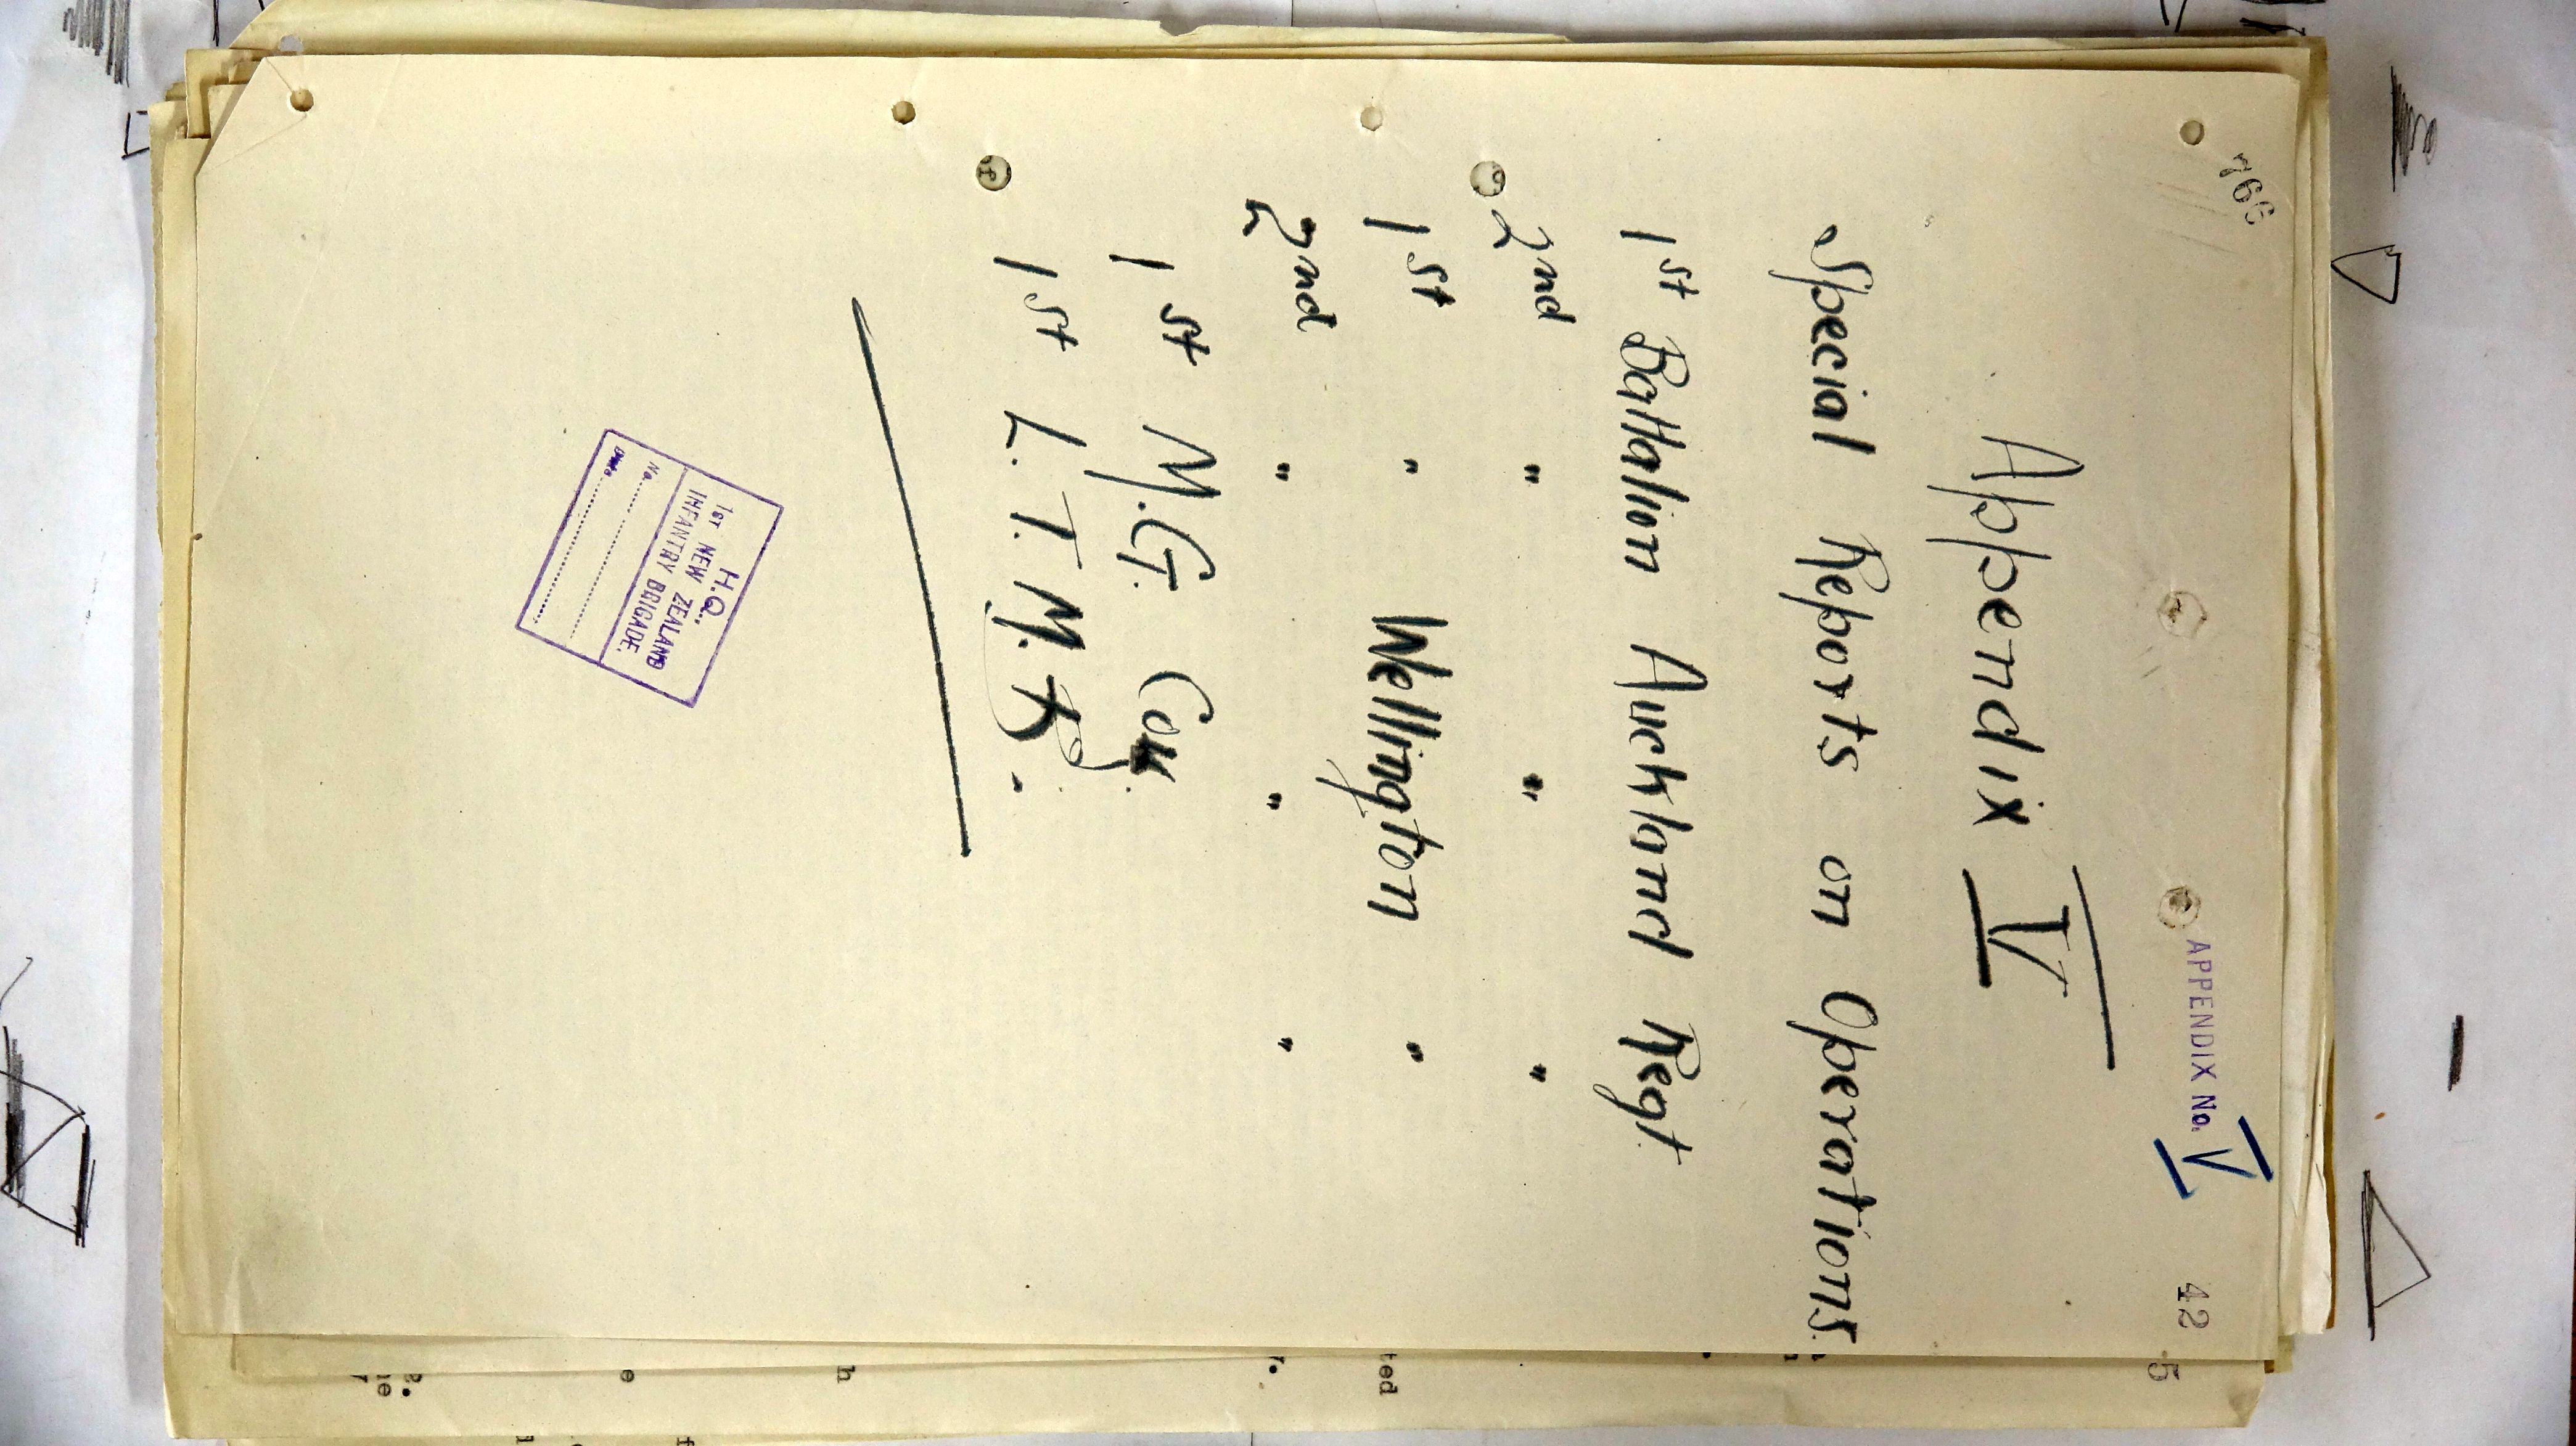 766
APPENDIX No. V
42
Appendix V
Special Reports on Operations.
1st Battalion Auckland Regt.
2nd " " "
1st " Wellington "
2nd " " "
1st M.G. Coy.
1st L.T.M.
H.Q.,
1ST NEW ZEALAND
INFANTRY BRIGADE.
No.
Date
5
ted
r.
h
e